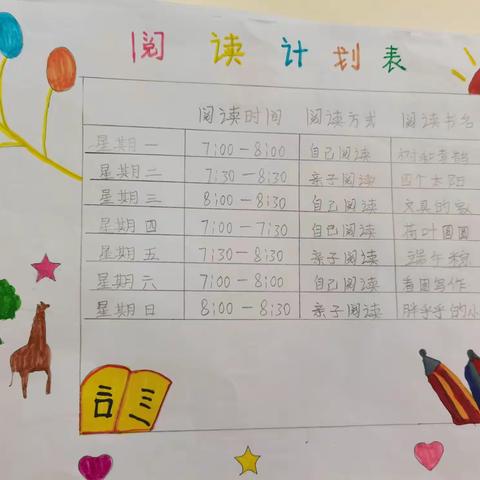 阅读计划表
阅读时间 阅读方式 阅读书名
星期一 7:00-8:00 自己阅读 树和喜鹊
星期二 7:30-8:30 亲子阅读 四个太阳
星期三 8:00-8:30 自己阅读 文具的家
星期四 7:00-7:30 自己阅读 荷叶圆圆
星期五 7:30-8:30 亲子阅读 端午粽
星期六 7:00-8:00 自己阅读 看图写作
星期日 8:00-8:30 亲子阅读 胖乎乎的小